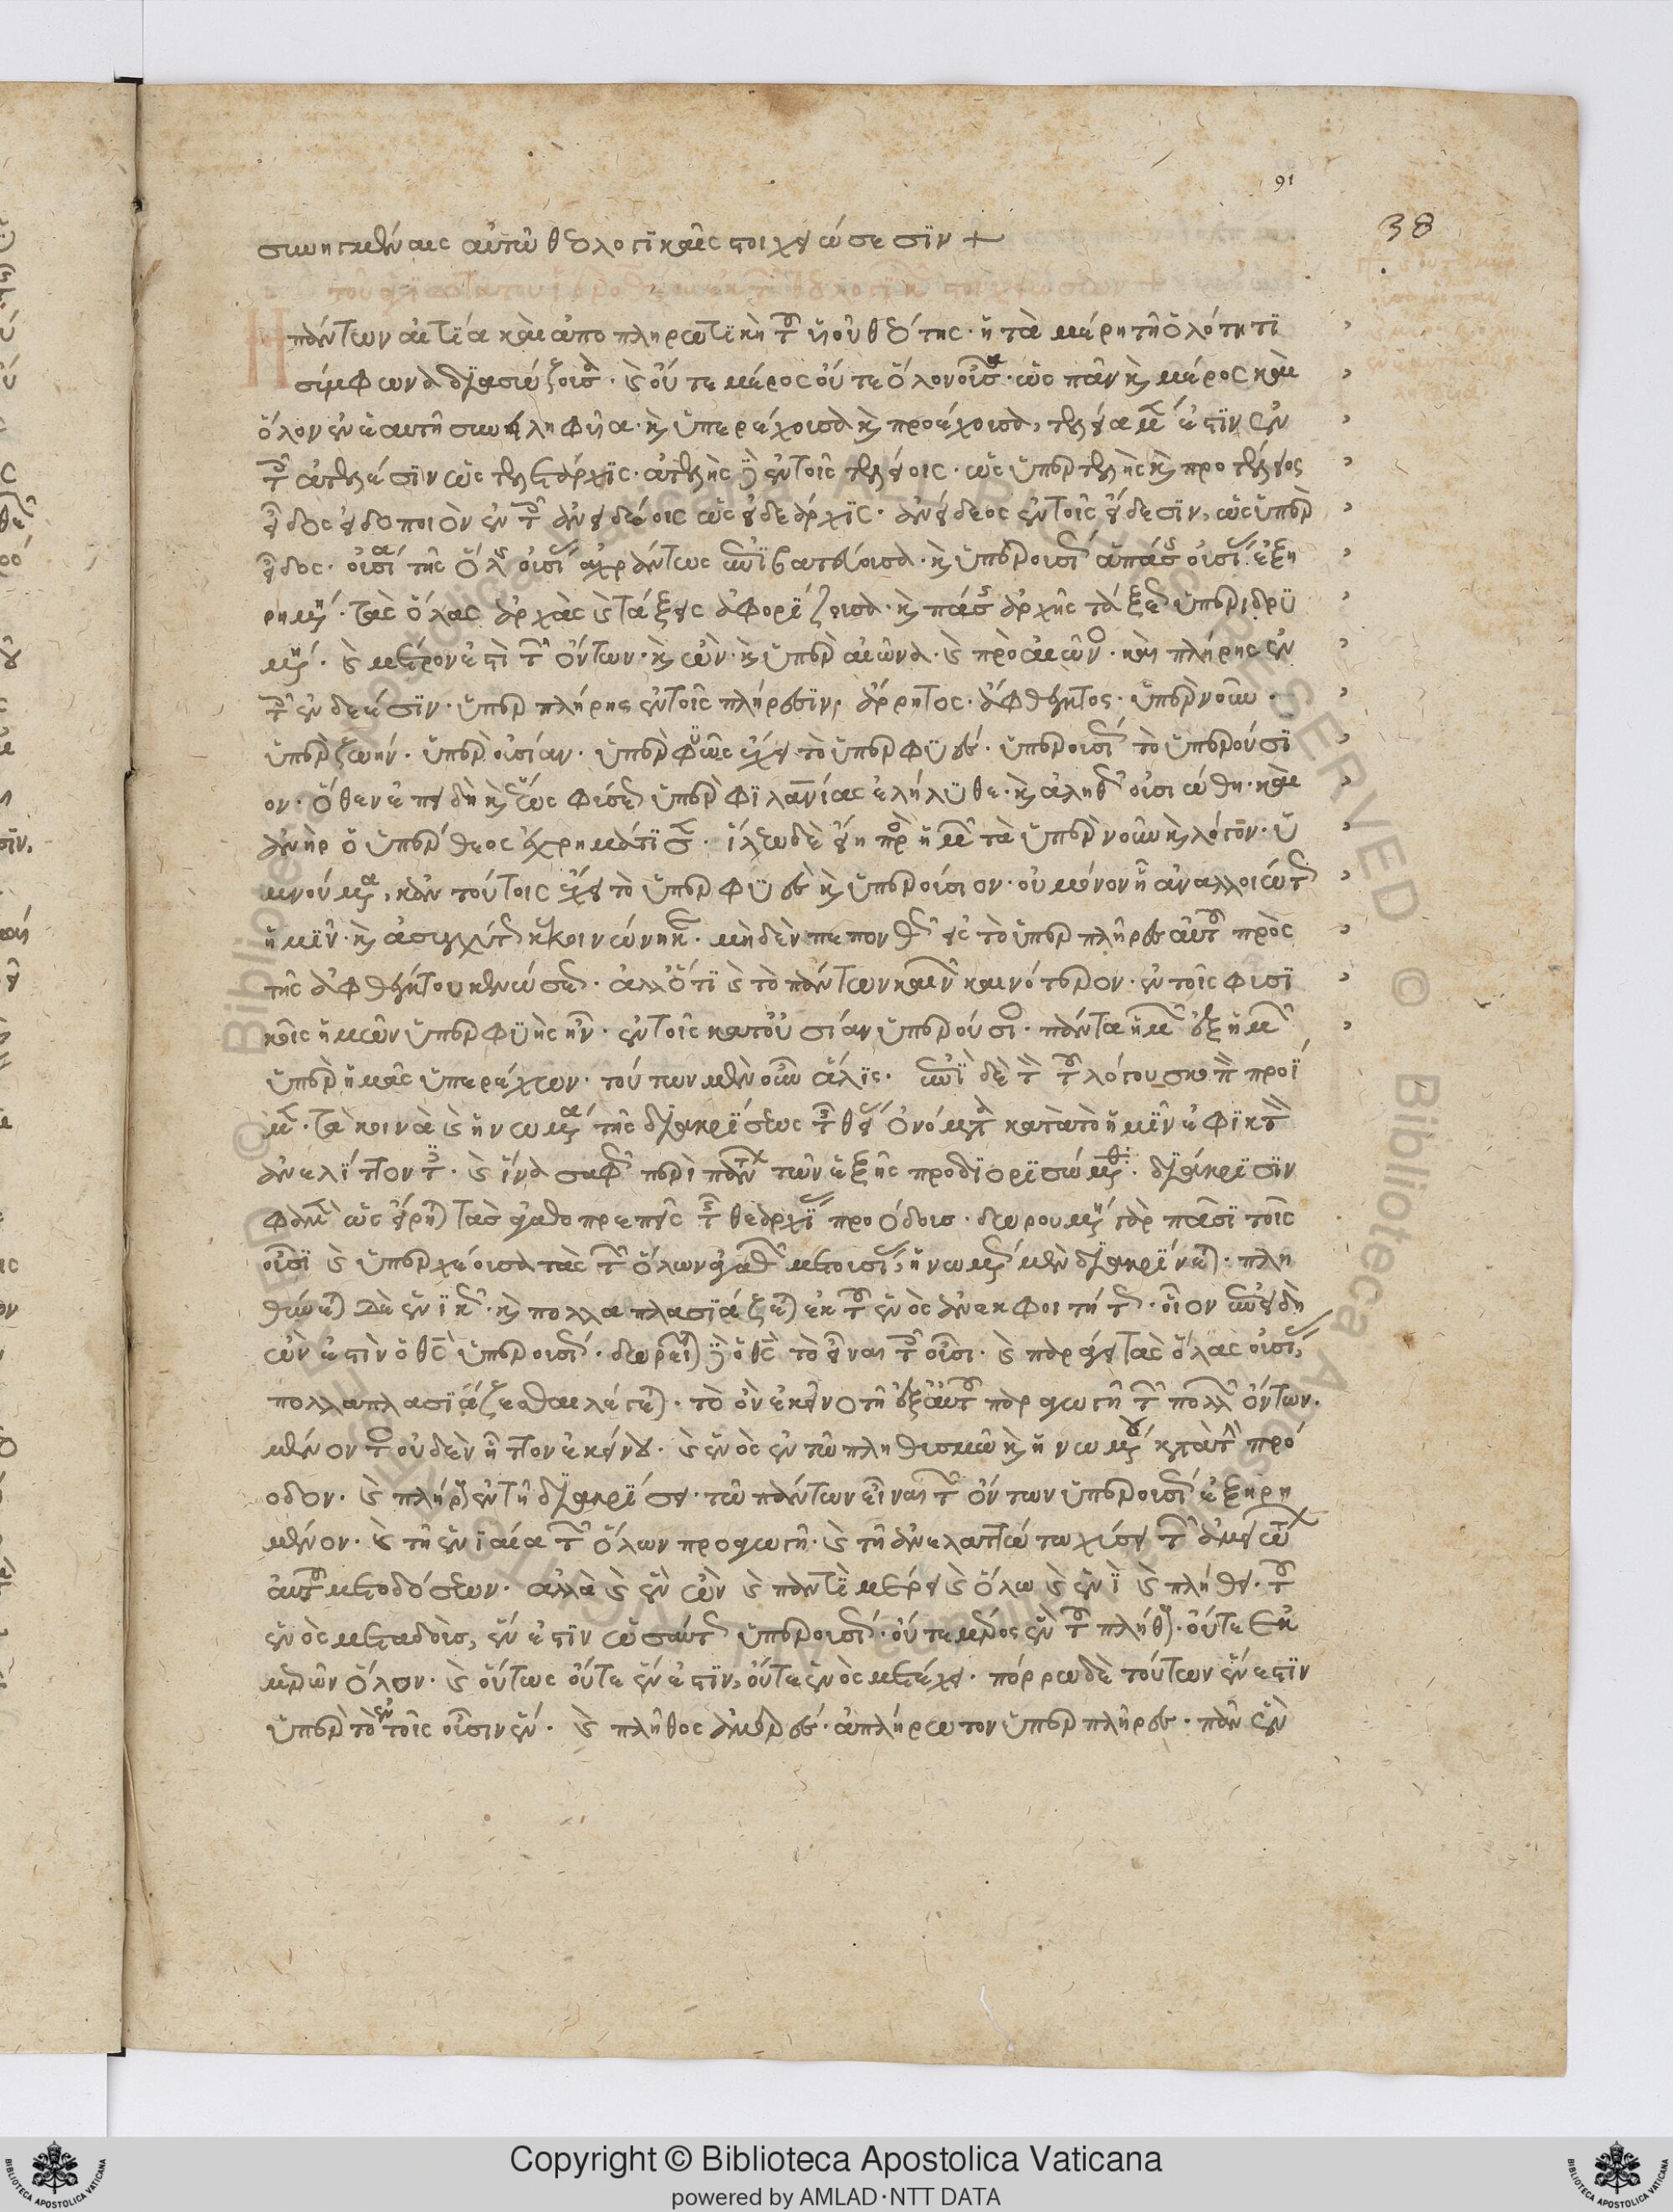 91
38
συνηγμέναις αὐτοῦ θεολογικαῖς στοιχειώσεσιν +
τοῦ ἁγιωτάτου ἱεροθέου ἐκ τῶν θεολογικῶν στοιχειώσεων +
Ἡ πάντων αἰτία καὶ ἀποπληρωτικὴ τοῦ υἱοῦ θεότης· ἡ τὰ μέρη τῇ ὁλότητι
σύμφωνα διασώζουσα· καὶ οὔτε μέρος οὔτε ὅλον οὖσα· ὡς πᾶν καὶ μέρος καὶ
ὅλον ἐν ἑαυτῇ συνειληφυῖα· καὶ ὑπερέχουσα καὶ προέχουσα, τελεία μέν ἐστιν ἐν
τοῖς ἀτελέσιν ὡς τελετάρχις· ἀτελὴς δὲ ἐν τοῖς τελείοις· ὡς ὑπερτελὴς καὶ προτέλειος
εἶδος εἰδοποιὸν ἐν τοῖς ἀνειδέοις ὡς εἰδεάρχις· ἀνείδεος ἐν τοῖς εἴδεσιν, ὡς ὑπὲρ
εἶδος· οὐσία ταῖς ὅλαις οὐσίαις ἀχράντως ἐπιβατεύουσα· καὶ ὑπερουσίως ἁπάσης οὐσίας ἐξῃ
ρημένη· τὰς ὅλας ἀρχὰς καὶ τάξεις ἀφορίζουσα· καὶ πάσης ἀρχῆς καὶ τάξεως ὑπεριδρυ
μένη· καὶ μέτρον ἐστὶ τῶν ὄντων· καὶ αἰών· καὶ ὑπὲρ αἰῶνα· καὶ πρὸ αἰώνων· καὶ πλήρης ἐν
τοῖς ἐνδεέσιν· ὑπερπλήρης ἐν τοῖς πλήρεσιν, ἄρρητος· ἄφθεγκτος· ὑπὲρ νοῦν·
ὑπὲρ ζωήν· ὑπὲρ οὐσίαν· ὑπερφυῶς ἔχει τὸ ὑπερφυές· ὑπερουσίως τὸ ὑπερούσι
ον· ὅθεν ἐπειδὴ καὶ ἕως φύσεως ὑπὲρ φιλανθρωπίας ἐλήλυθε· καὶ ἀληθῶς οὐσιώθη· καὶ
ἀνὴρ ὁ ὑπέρθεος ἐχρημάτισεν· ἵλεω δὲ εἴη πρὸς ἡμῶν τὰ ὑπὲρ νοῦν καὶ λόγον· ὑ
μνούμενα, κἂν τούτοις ἔχει τὸ ὑπερφυὲς καὶ ὑπερούσιον· οὐ μόνον ᾗ ἀναλλοιώτως
ἡμῖν· καὶ ἀσυγχύτως κεκοινώνηκε· μηδὲν πεπονθὼς εἰς τὸ ὑπερπλῆρες αὐτοῦ πρὸς
τῆς ἀφθέγκτου κενώσεως· ἀλλ' ὅτι καὶ τὸ πάντων καινῶν καινότερον· ἐν τοῖς φυσι
κοῖς ἡμῶν ὑπερφυὴς ἦν· ἐν τοῖς κατ' οὐσίαν ὑπερούσιος· πάντα τὰ ἡμῶν ἐξ ἡμῶν
ὑπὲρ ἡμᾶς ὑπερέχων· τούτων μὲν οὖν ἅλις· ἐπὶ δὲ τὸν τοῦ λόγου σκοπὸν προΐ
ωμεν· τὰ κοινὰ καὶ ἡνωμένα τῆς διακρίσεως τῆς θείας ὀνόματα κατὰ τὸ ἡμῖν ἐφικτὸν
ἀνελίττοντες· καὶ ἵνα σαφῶς περὶ πάντων τῶν ἑξῆς προδιορισώμεθα· διάκρισιν
φαμὲν ὡς εἴρηται τὰς ἀγαθοπρεπεῖς τῆς θεαρχίας προόδους· δωρουμένη γὰρ πᾶσι τοῖς
οὖσι καὶ ὑπερχέουσα τὰς τῶν ὅλων ἀγαθῶν μετουσίας, ἡνωμένως μὲν διακρίνεται· πλη
θύνεται δὲ ἑνικῶς· καὶ πολλαπλασιάζεται ἐκ τοῦ ἑνὸς ἀνεκφοιτήτως· οἷον ἐπειδὴ
ὤν ἐστιν ὁ θς ὑπερουσίως· δωρεῖται δὲ ὁ θς τὸ εἶναι τοῖς οὖσι· καὶ παράγει τὰς ὅλας οὐσίας,
πολλαπλασιάζεσθαι λέγεται· τὸ ὂν ἐκεῖνο τῇ ἐξ αὐτοῦ παραγωγῇ τῶν πολλῶν ὄντων·
μένοντος οὐδὲν ἧττον ἐκείνου· καὶ ἑνὸς ἐν τῷ πληθυσμῷ καὶ ἡνωμένου κατὰ τὴν πρό
οδον· καὶ πλήρους ἐν τῇ διακρίσει· τῷ πάντων εἶναι τῶν ὄντων ὑπερουσίως ἐξῃρη
μένον· καὶ τῇ ἑνιαίᾳ τῶν ὅλων προαγωγῇ· καὶ τῇ ἀνελαττώτῳ χύσει τῶν ἀμειώτων
αὐτοῦ μεταδόσεων· ἀλλὰ καὶ ἓν ὢν καὶ παντὶ μέρει καὶ ὅλῳ καὶ ἑνὶ καὶ πλήθει· τοῦ
ἑνὸς μεταδιδούς, ἕν ἐστιν ὡσαύτως ὑπερουσίως· οὔτε μέρος ἓν τοῦ πλήθους· οὔτε ἐκ
μερῶν ὅλον· καὶ οὕτως οὔτε ἕν ἐστιν, οὔτε ἑνὸς μετέχει· πόρρω δὲ τούτων ἕν ἐστιν
ὑπὲρ τὸ ἐν τοῖς οὖσιν ἕν· καὶ πλῆθος ἀμερές· ἀπλήρωτον ὑπερπλῆρες· πᾶν ἓν
Copyright © Biblioteca Apostolica Vaticana
powered by AMLAD·NTT DATA